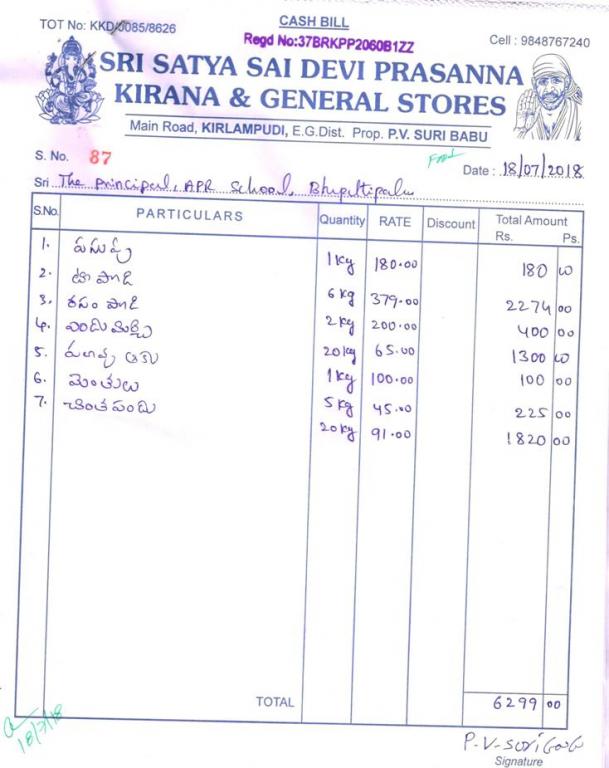 CASH BILL
TOT No: KKD/0085/8626
Regd No:37BRKPP2060B1ZZ
Cell : 9848767240
SRI SATYA SAI DEVI PRASANNA
KIRANA & GENERAL STORES
Main Road, KIRLAMPUDI, E.G.Dist. Prop. P.V. SURI BABU
S. No. 87
Date : 18/07/2018
Sri The Principal, APR School, Bhupathipalu
S.No. PARTICULARS Quantity RATE Discount Total Amount
Rs. Ps.
1. పసుపు 1 kg 180.00 180 00
2. టా పొడి 6 kg 379.00 2274 00
3. రసం పొడి 2 kg 200.00 400 00
4. ఎండు మిర్చి 20 kg 65.00 1300 00
5. 1 kg 100.00 100 00
6. మెంతులు 5 kg 45.00 225 00
7. చింతపండు 20 kg 91.00 1820 00
TOTAL 6299 00
18/7/18
P.V-Suri బాబు
Signature